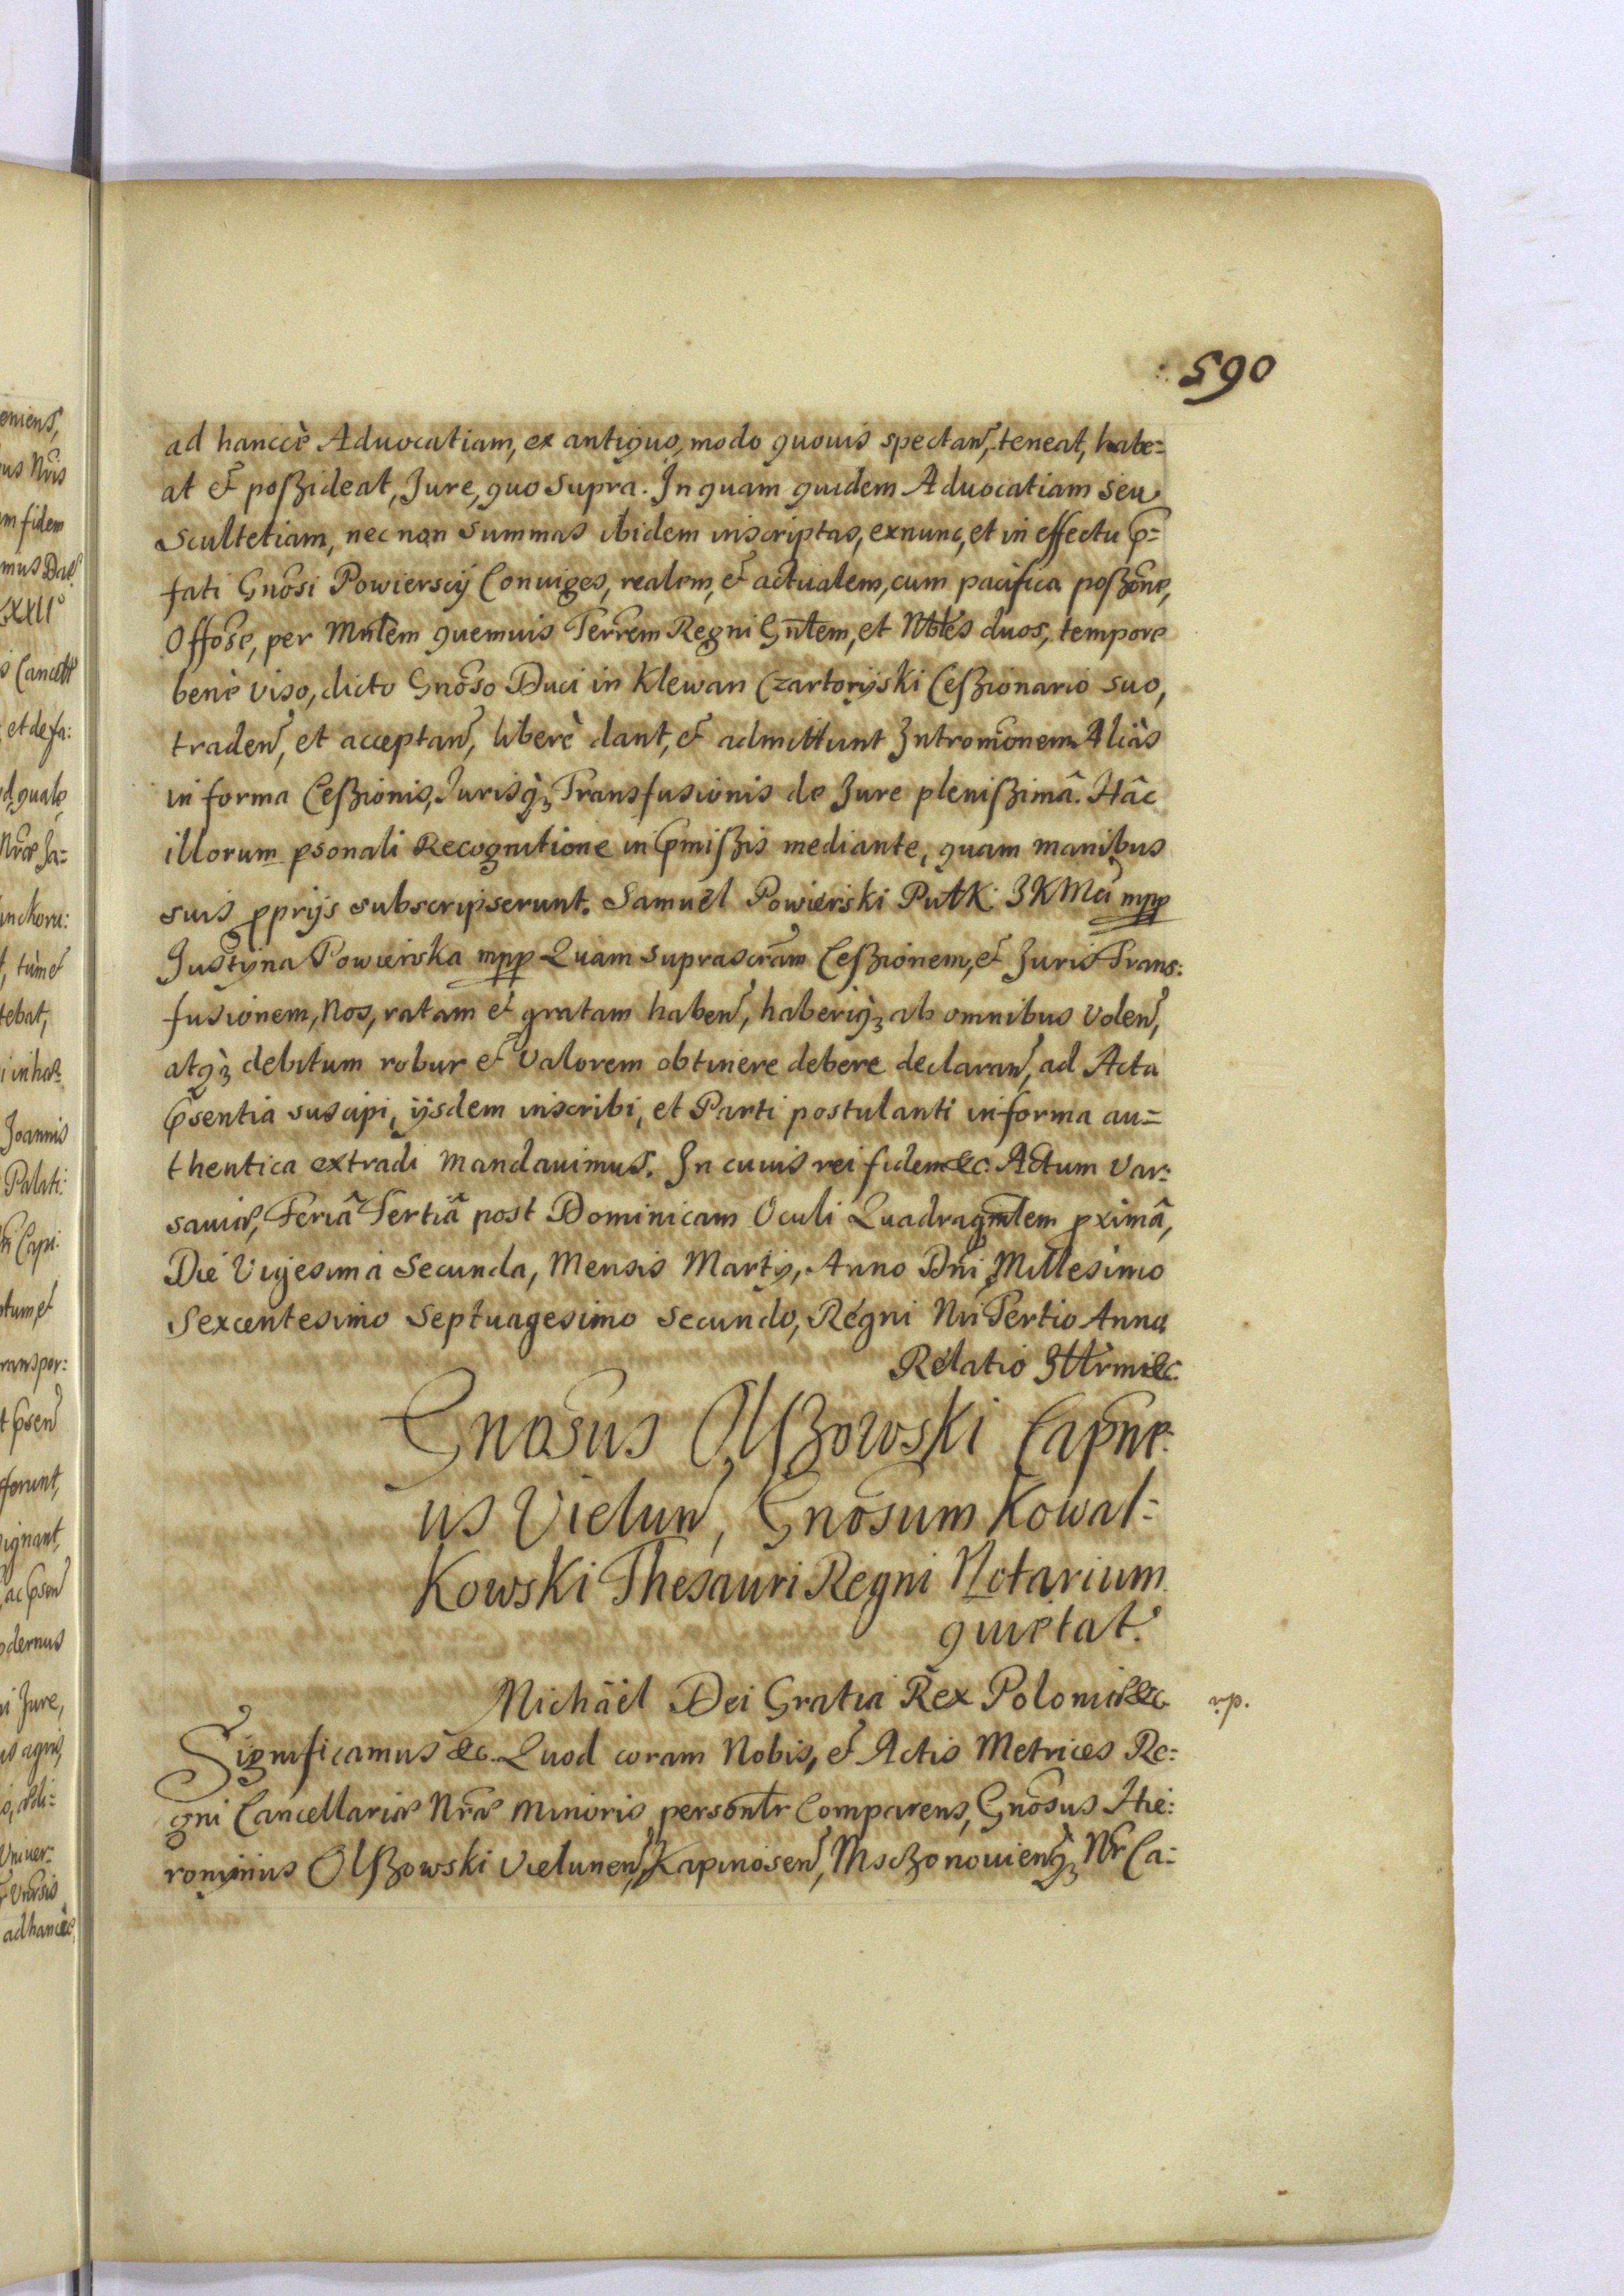 590
ad hanccè Aduocatiam, ex antiquo, modo quouis spectan, teneat, habe=
at et poßideat, Jure, quo supra. In quam quidem Aduocatiam seu
Scultetiam, nec non summas ibidem inscriptas, exnunc, et in effectu p=
fati Gnosi Powierscy Coniuges, realem, et actualem, cum pacifica poßone,
Offose, per Mnlem quemuis Terrem Regni Gnlem, et Nbles duos, tempore
benè viso, dicto Gnoso Duci in Klewan Czartoryski Ceßionario suo,
traden, et acceptan, liberè dant, et admittunt Intromonem. Aliàs
in forma Ceßionis, Jurisq; Transfusionis de Jure plenißimâ. Hâc
illorum psonali Recognitione in pmißis mediante, quam manibus
suis pprijs subscripserunt. Samuel Powierski PułK: JKMci mpp
Justyna Powierska mpp Quam suprascram Ceßionem, et Juris Trans:
fusionem, Nos, ratam et gratam haben, haberiq; ab omnibus volen,
atq; debitum robur et valorem obtinere debere declaran, ad Acta
psentia suscipi, ijsdem inscribi, et Parti postulanti in forma au=
thentica extradi mandauimus. In cuius rei fidem &c. Actum Var:
sauiæ, Feriâ Tertiâ post Dominicam Oculi Quadragmlem pximâ,
Die Vigesima Secunda, Mensis Martij, Anno Dni Millesimo
Sexcentesimo Septuagesimo secundo, Regni Nri Tertio Anno
Relatio Jllrmi &c.
Gnosus Olßowski Capne:
us Vielun, Gnosum Kowal=
Kowski Thesauri Regni Notarium
quietat.
Michäel Dei Gratia Rex Poloniæ &c. r.p.
Significamus &c. Quod coram Nobis, et Actis Metrices Re:
gni Cancellariæ Nræ minoris personlr Comparens, Gnosus Hie:
ronymus Olßowski Vielunen, Kapinosen, Msczonouienq; Nr Ca: